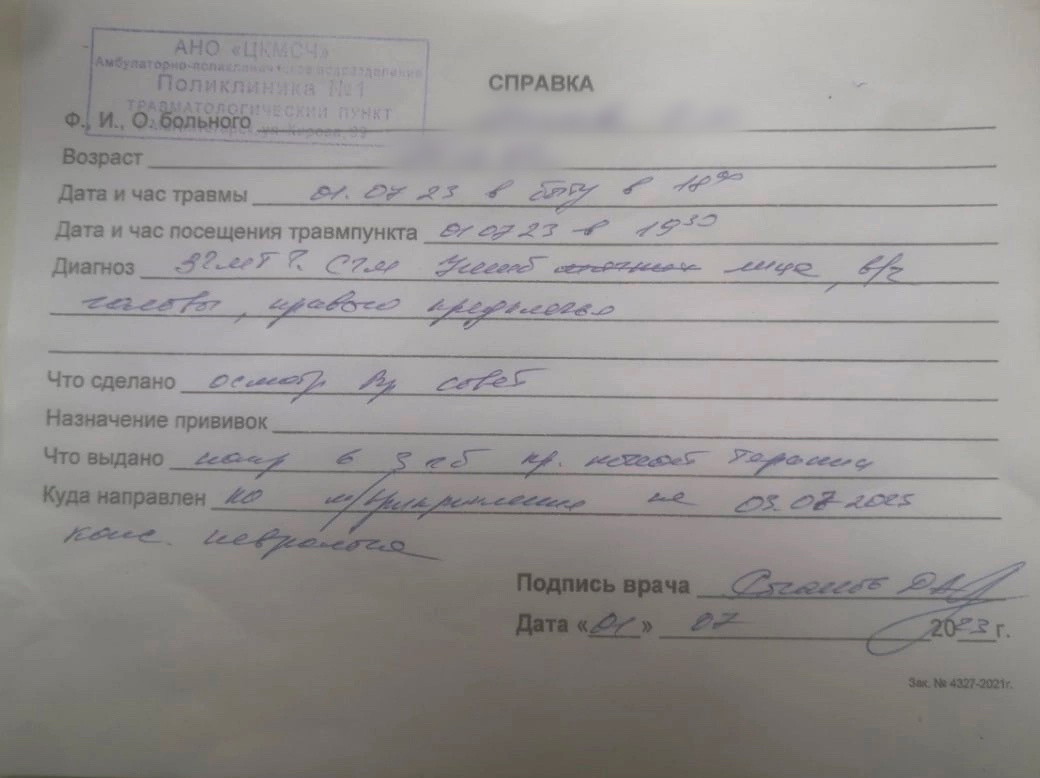 АНО «ЦКМСЧ»
Амбулаторно-поликлиническое подразделение
Поликлиника №1
ТРАВМАТОЛОГИЧЕСКИЙ ПУНКТ
г. Магнитогорск, ул. Кирова, 99
СПРАВКА
Ф., И., О. больного
Возраст
Дата и час травмы 01.07 23 в быту в 18 00
Дата и час посещения травмпункта 01 07 23 в 19 30
Диагноз ЗЧМТ?. СГМ Ушиб лица, в/ч
головы, правого предплечья
Что сделано осмотр Rg совет
Назначение прививок
Что выдано напр в 3 гб пр.
Куда направлен по м/прикрепления на 03.07
конс. невролога
Подпись врача
Дата «01» 07 2023 г.
Зак. № 4327-2021г.